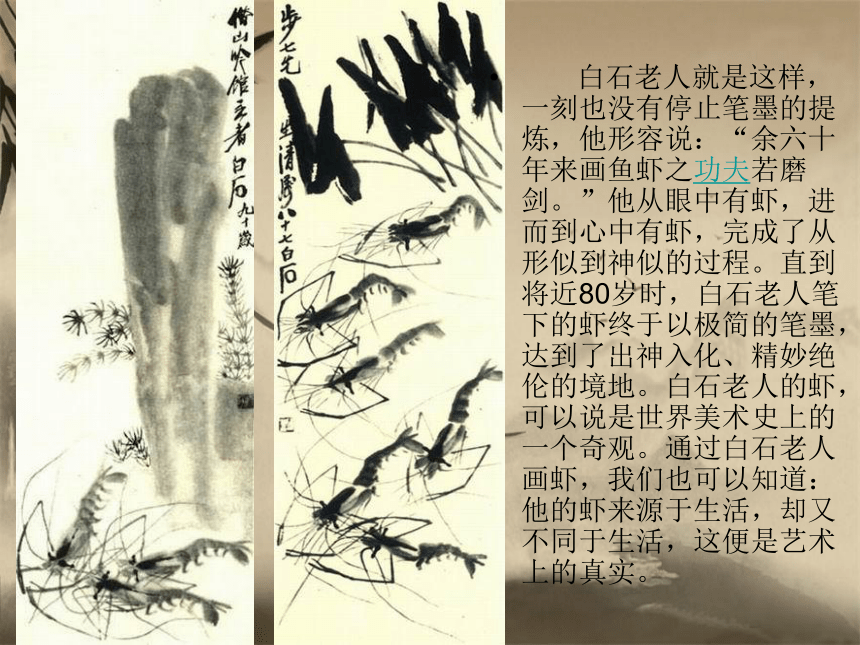 借山吟馆主者白石九十岁
步七先生清属八十七白石
白石老人就是这样，
一刻也没有停止笔墨的提
炼，他形容说：“余六十
年来画鱼虾之功夫若磨
剑。”他从眼中有虾，进
而到心中有虾，完成了从
形似到神似的过程。直到
将近80岁时，白石老人笔
下的虾终于以极简的笔墨，
达到了出神入化、精妙绝
伦的境地。白石老人的虾，
可以说是世界美术史上的
一个奇观。通过白石老人
画虾，我们也可以知道：
他的虾来源于生活，却又
不同于生活，这便是艺术
上的真实。